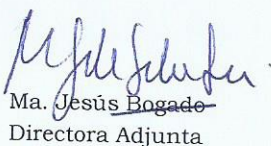 Ma. Jesús Bogado
Directora Adjunta